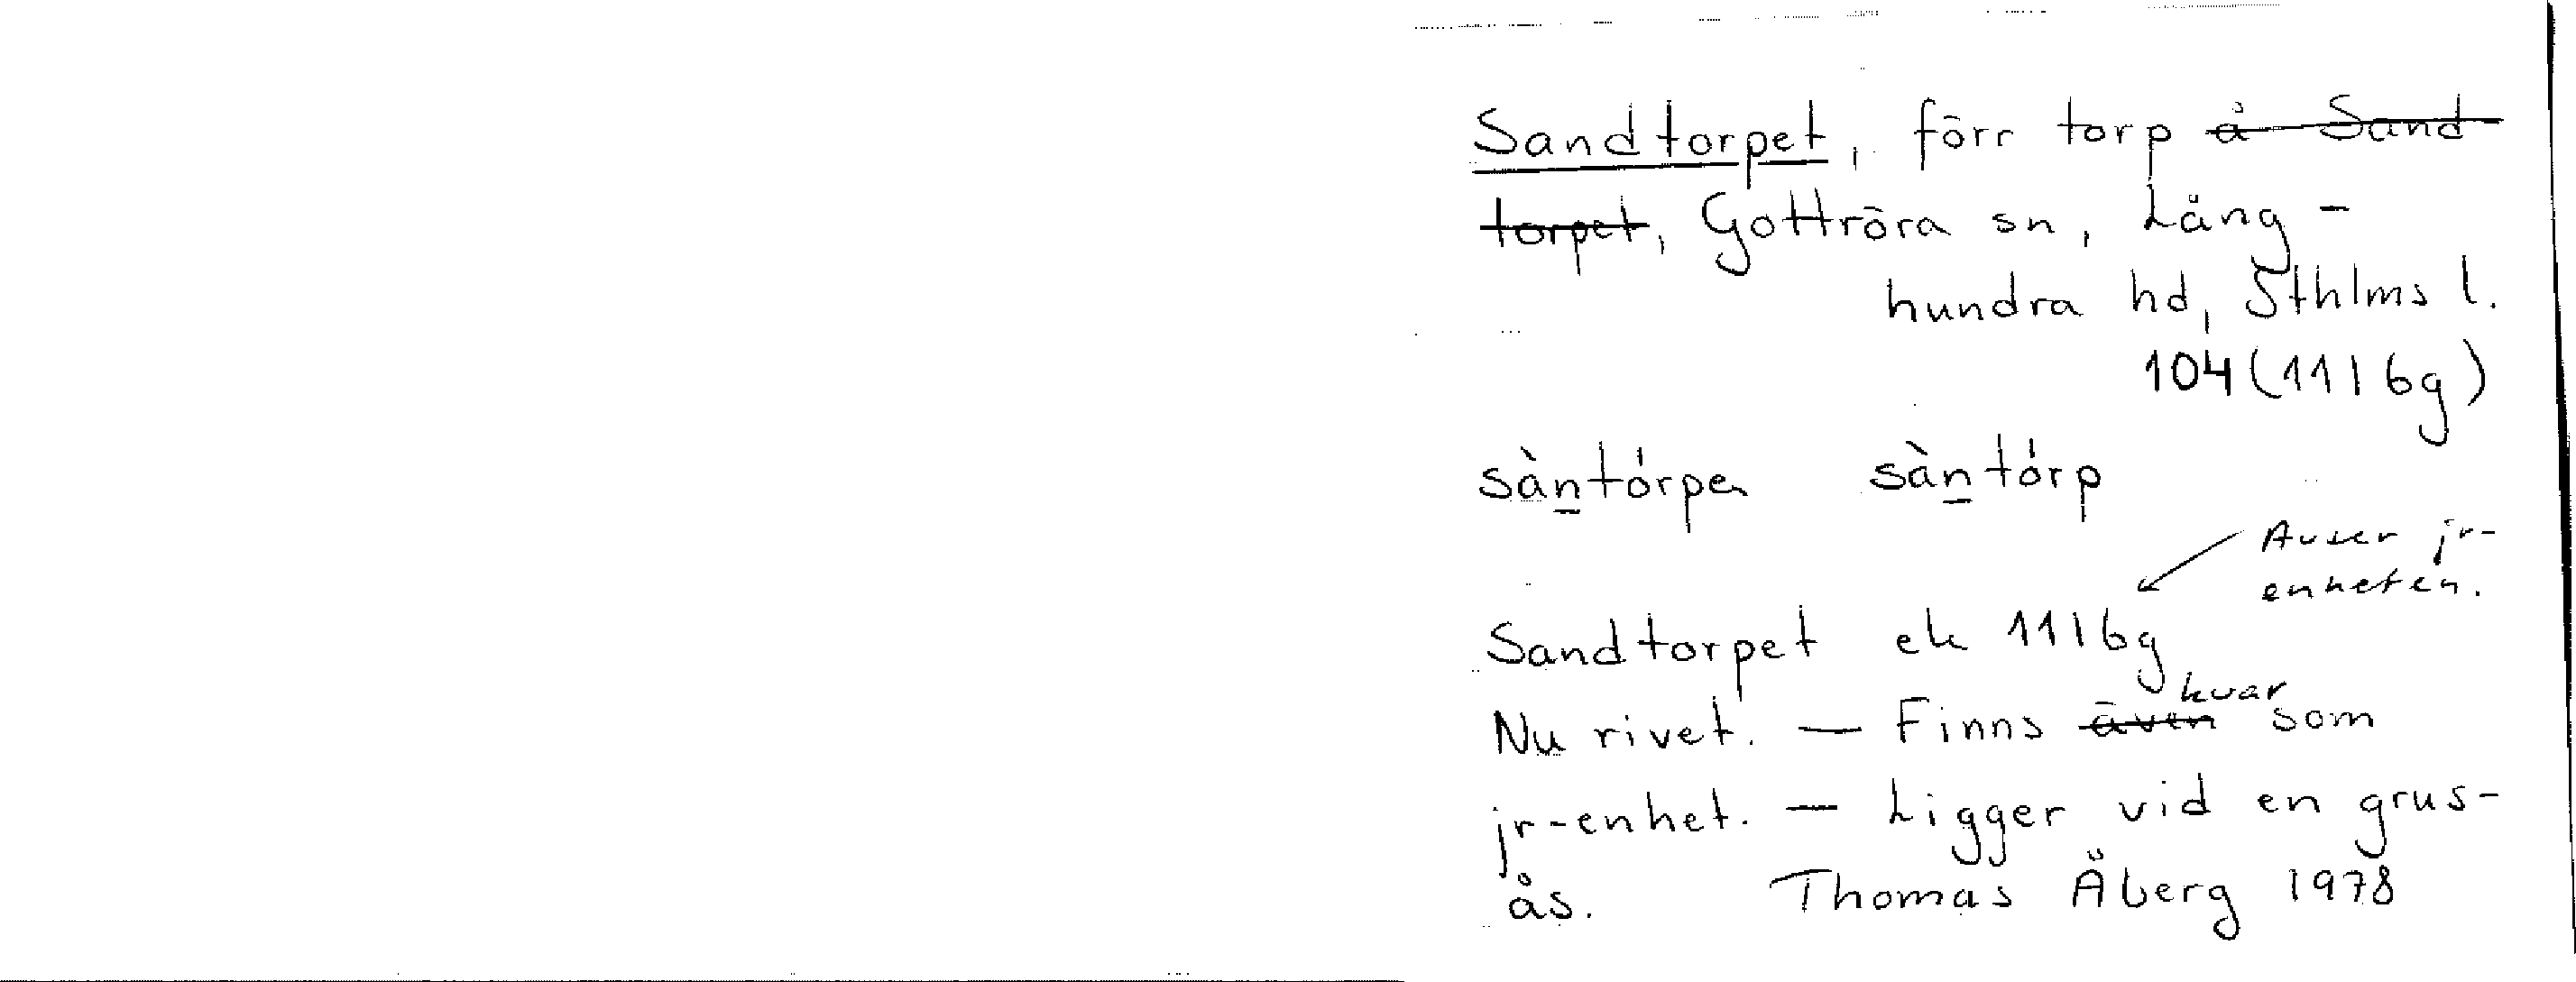 Sandtorpet, förr torp å Sand
torpet, Gottröra sn, Lång-
hundra hd, Sthlms l.
104 (11 I 6g)
sàntórpeṇ sàntórp
Avser jr-
enheten.
Sandtorpet ek 11 I 6g
Nu rivet. — Finns även kvar som
jr-enhet. — Ligger vid en grus-
ås. Thomas Åberg 1978